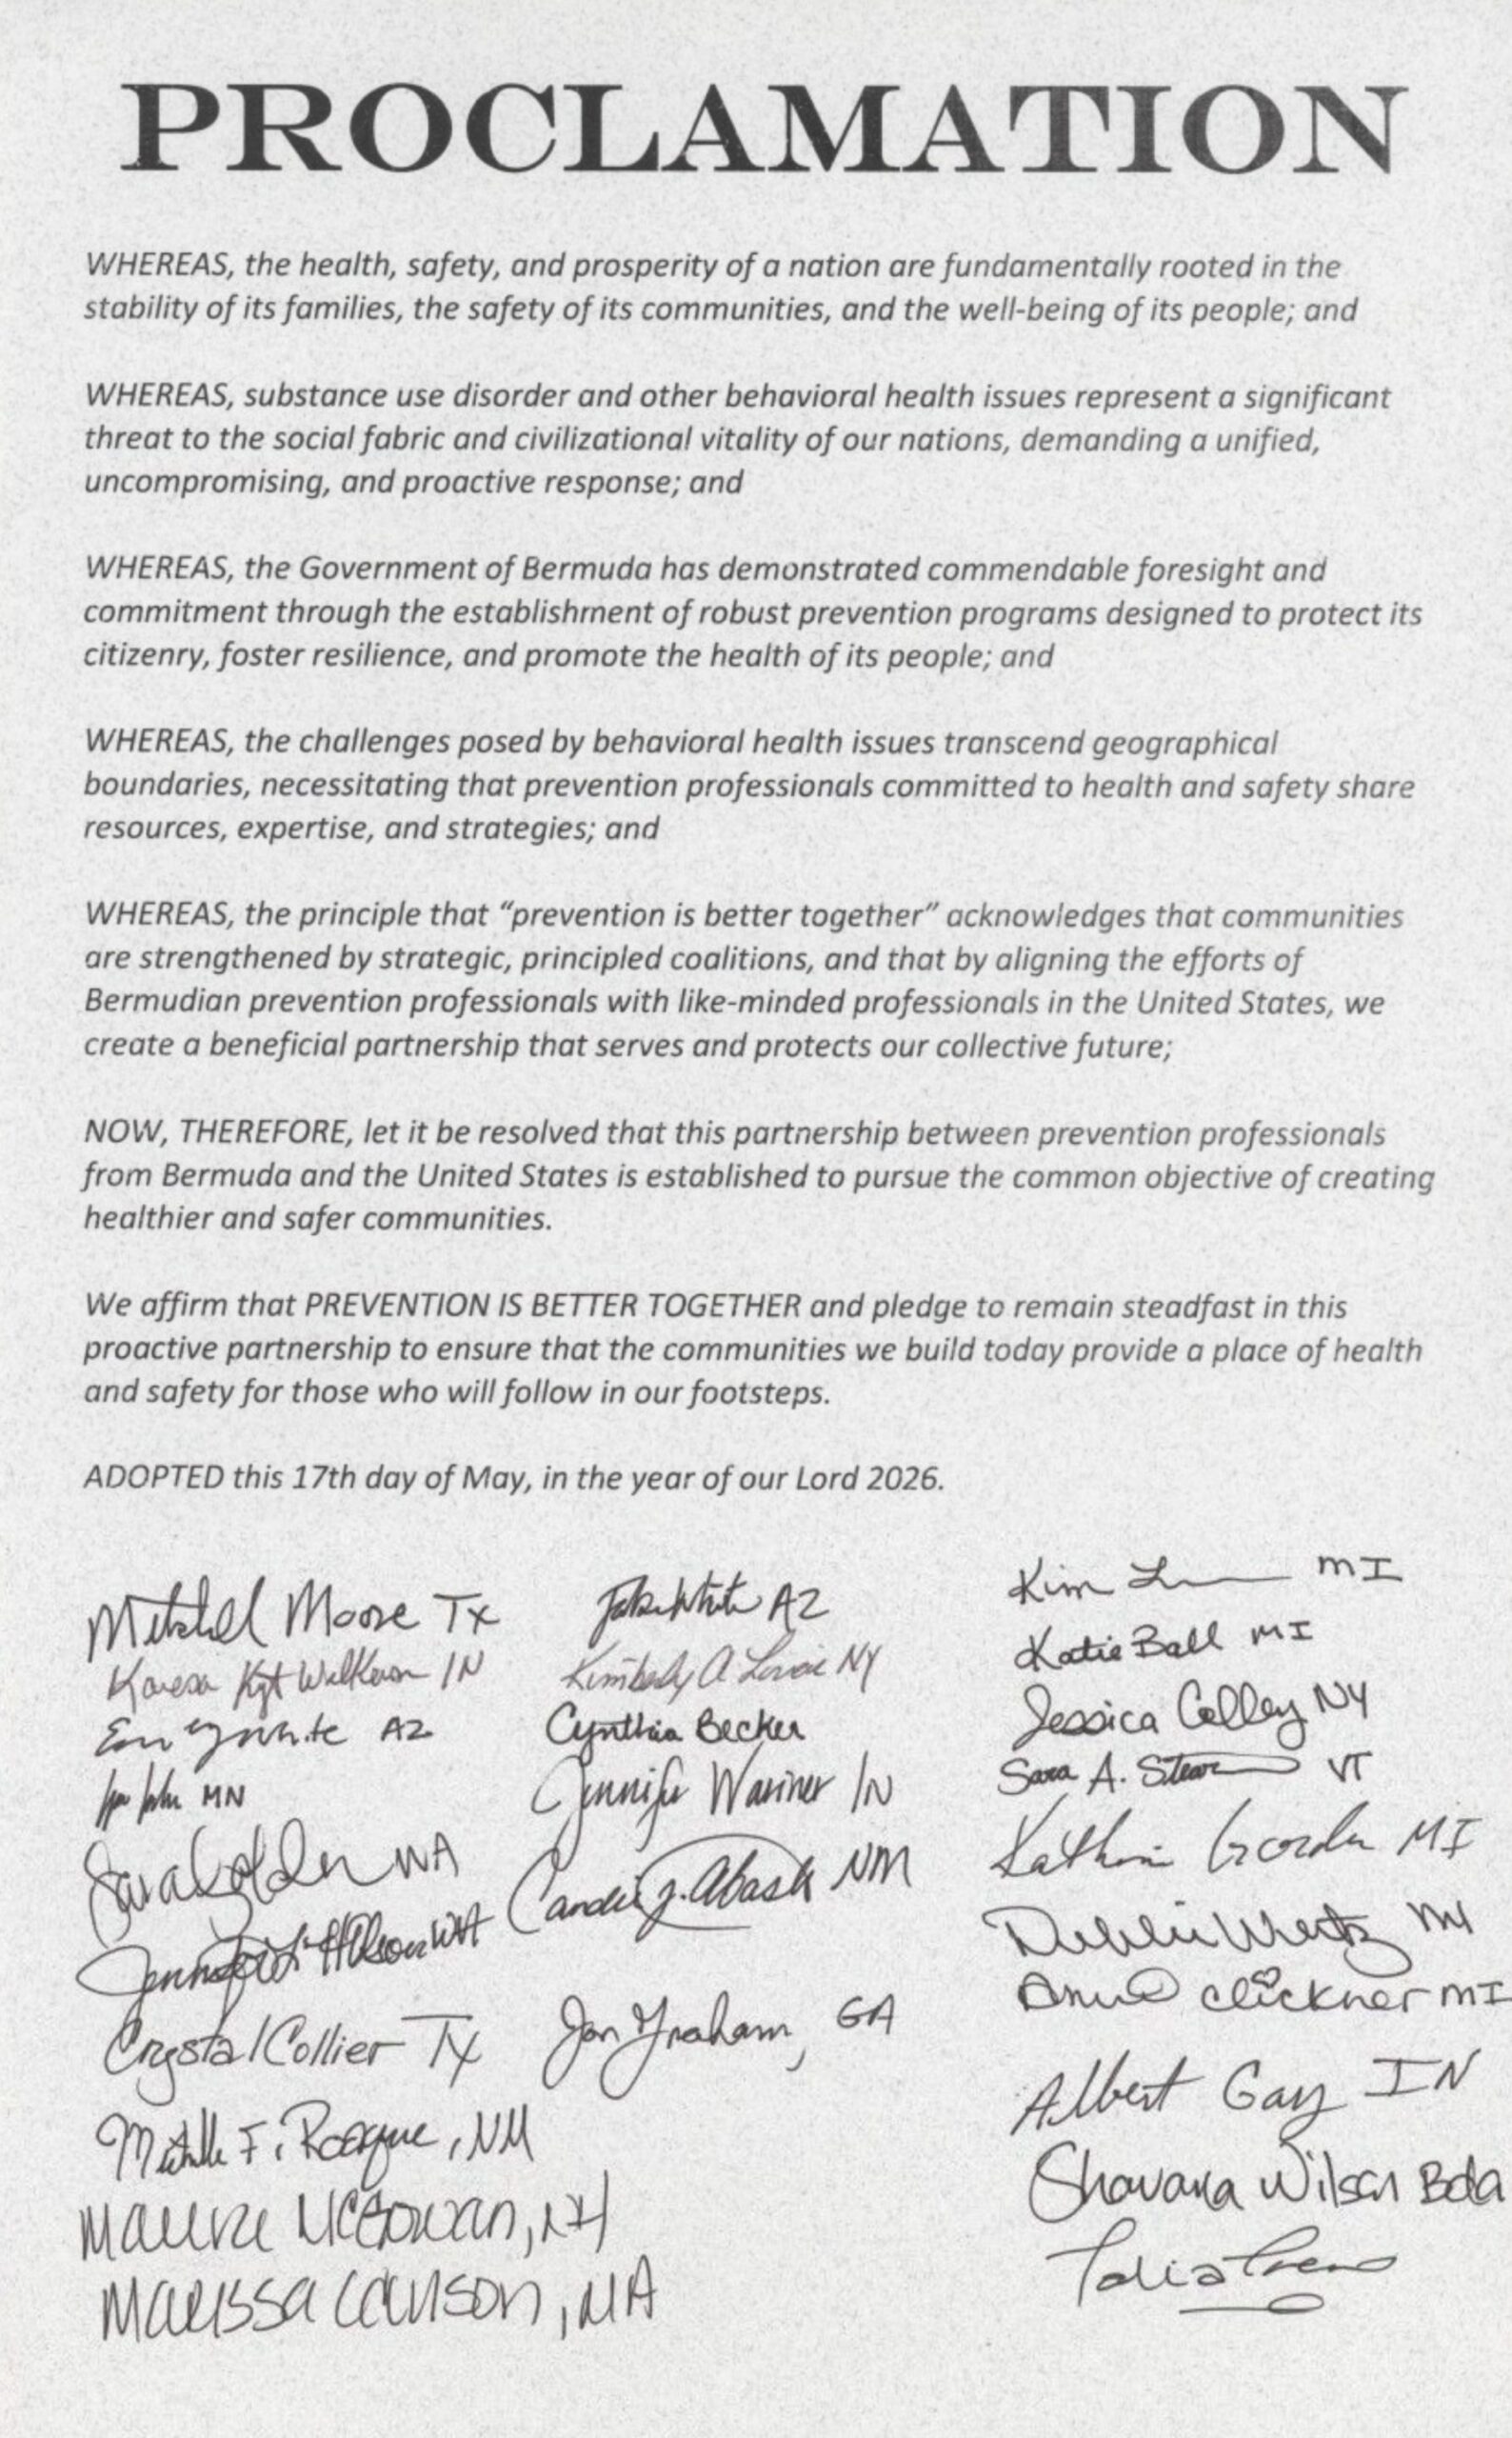 PROCLAMATION
WHEREAS, the health, safety, and prosperity of a nation are fundamentally rooted in the
stability of its families, the safety of its communities, and the well-being of its people; and
WHEREAS, substance use disorder and other behavioral health issues represent a significant
threat to the social fabric and civilizational vitality of our nations, demanding a unified,
uncompromising, and proactive response; and
WHEREAS, the Government of Bermuda has demonstrated commendable foresight and
commitment through the establishment of robust prevention programs designed to protect its
citizenry, foster resilience, and promote the health of its people; and
WHEREAS, the challenges posed by behavioral health issues transcend geographical
boundaries, necessitating that prevention professionals committed to health and safety share
resources, expertise, and strategies; and
WHEREAS, the principle that “prevention is better together” acknowledges that communities
are strengthened by strategic, principled coalitions, and that by aligning the efforts of
Bermudian prevention professionals with like-minded professionals in the United States, we
create a beneficial partnership that serves and protects our collective future;
NOW, THEREFORE, let it be resolved that this partnership between prevention professionals
from Bermuda and the United States is established to pursue the common objective of creating
healthier and safer communities.
We affirm that PREVENTION IS BETTER TOGETHER and pledge to remain steadfast in this
proactive partnership to ensure that the communities we build today provide a place of health
and safety for those who will follow in our footsteps.
ADOPTED this 17th day of May, in the year of our Lord 2026.
Mitchell Moore TX
IN
AZ
MN
WA
Jennifer
Crystal Collier TX
F. Roaque, NM
McGowan, NH
Marissa Carlson, MA
Jake White AZ
Kimberly A. NY
Cynthia Becker
Jennifer Wariner IN
Candie J. NM
Jon Graham, GA
Kim MI
Katie Ball MI
Jessica Colley NY
Sara A. VT
MI
Debbie Wertz NY
Clickner MI
Albert Gay IN
Shavana Wilson Bda
Talia